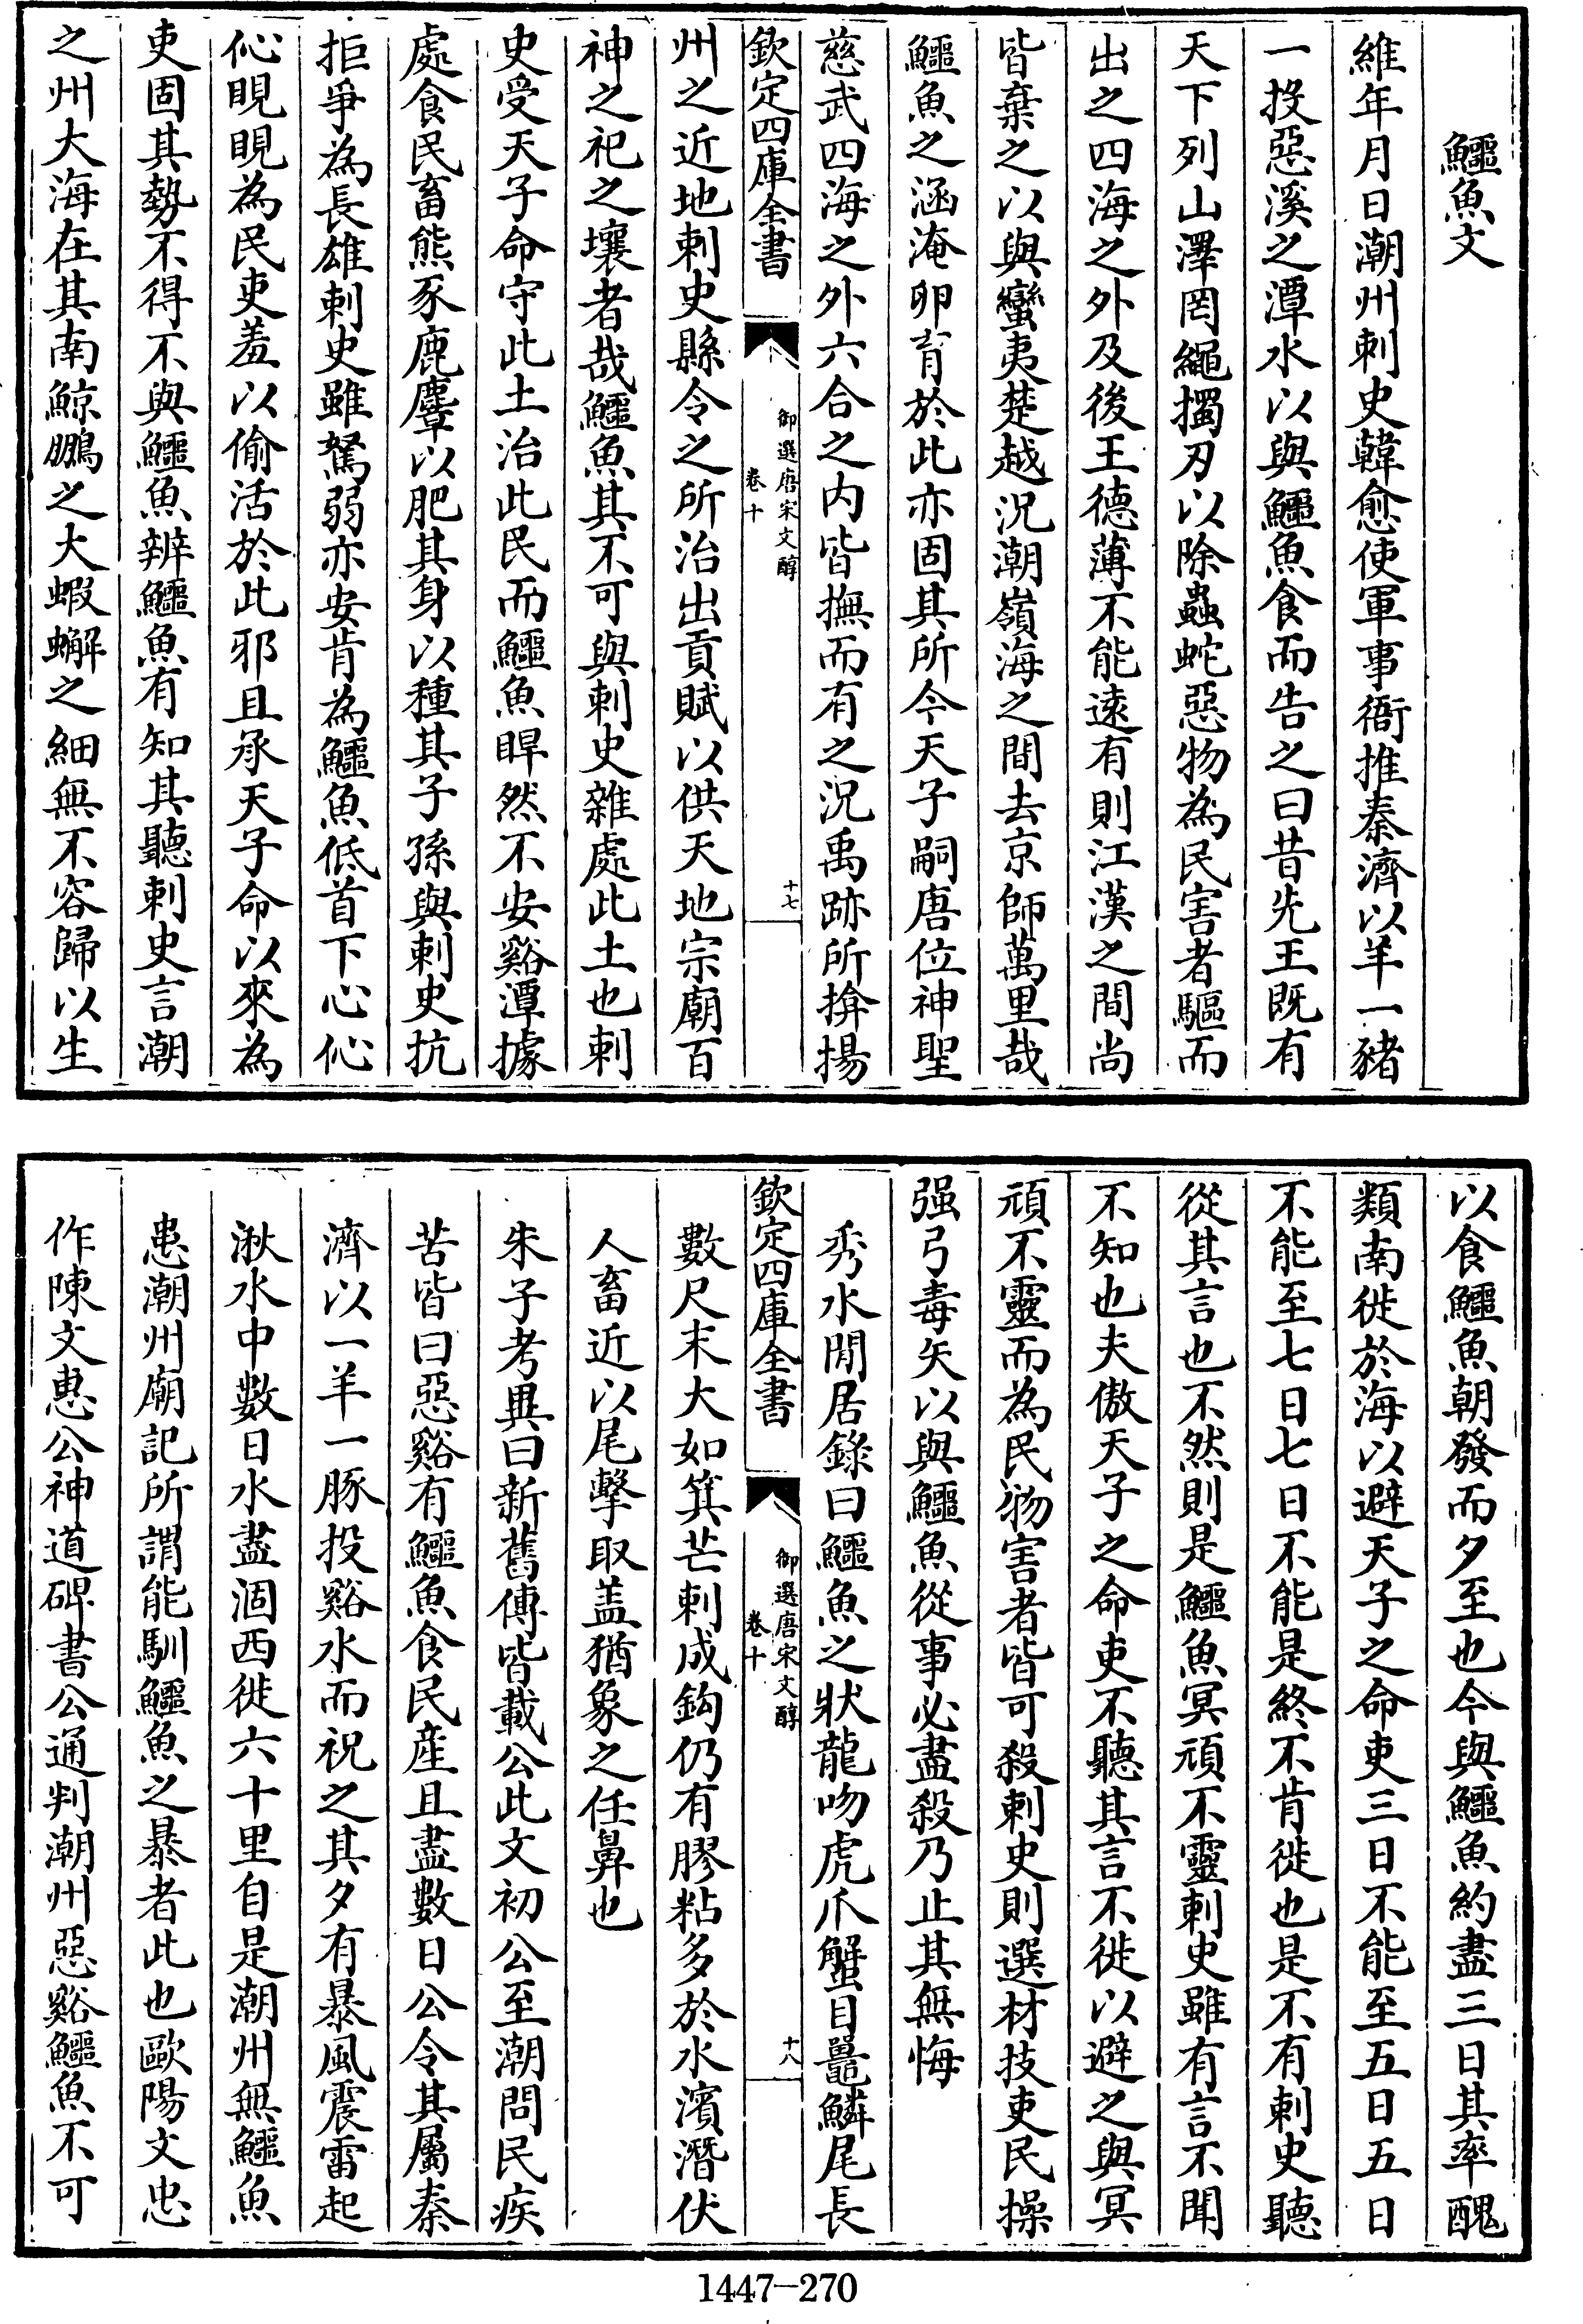 鱷魚文
維年月日潮州刺史韓愈使軍事衙推秦濟以羊一豬
一投惡溪之潭水以與鱷魚食而告之曰昔先王既有
天下列山澤罔繩擉刃以除蟲蛇惡物為民害者驅而
出之四海之外及後王德薄不能遠有則江漢之間尚
皆棄之以與蠻夷楚越況潮嶺海之間去京師萬里哉
鱷魚之涵淹卵育於此亦固其所今天子嗣唐位神聖
慈武四海之外六合之内皆撫而有之況禹跡所揜揚
欽定四庫全書
御選唐宋文醇
卷十
十七
州之近地刺史縣令之所治出貢賦以供天地宗廟百
神之祀之壤者哉鱷魚其不可與刺史雜處此土也刺
史受天子命守此土治此民而鱷魚睅然不安谿潭據
處食民畜熊豕鹿麞以肥其身以種其子孫與刺史抗
拒爭為長雄刺史雖駑弱亦安肯為鱷魚低首下心伈
伈睍睍為民吏羞以偷活於此邪且承天子命以來為
吏固其勢不得不與鱷魚辨鱷魚有知其聽刺史言潮
之州大海在其南鯨鵬之大蝦蠏之細無不容歸以生
以食鱷魚朝發而夕至也今與鱷魚約盡三日其率醜
類南徙於海以避天子之命吏三日不能至五日五日
不能至七日七日不能是終不肯徙也是不有刺史聽
從其言也不然則是鱷魚冥頑不靈刺史雖有言不聞
不知也夫傲天子之命吏不聽其言不徙以避之與冥
頑不靈而為民物害者皆可殺刺史則選材技吏民操
强弓毒矢以與鱷魚從事必盡殺乃止其無悔
秀水閒居錄曰鱷魚之狀龍吻虎爪蟹目鼉鱗尾長
欽定四庫全書
御選唐宋文醇
卷十
十八
數尺末大如箕芒刺成鈎仍有膠粘多於水濱潛伏
人畜近以尾擊取盖猶象之任鼻也
朱子考異曰新舊傳皆載公此文初公至潮問民疾
苦皆曰惡谿有鱷魚食民産且盡數日公令其屬秦
濟以一羊一豚投谿水而祝之其夕有暴風震雷起
湫水中數日水盡涸西徙六十里自是潮州無鱷魚
患潮州廟記所謂能馴鱷魚之暴者此也歐陽文忠
作陳文惠公神道碑書公通判潮州惡谿鱷魚不可
1447-270